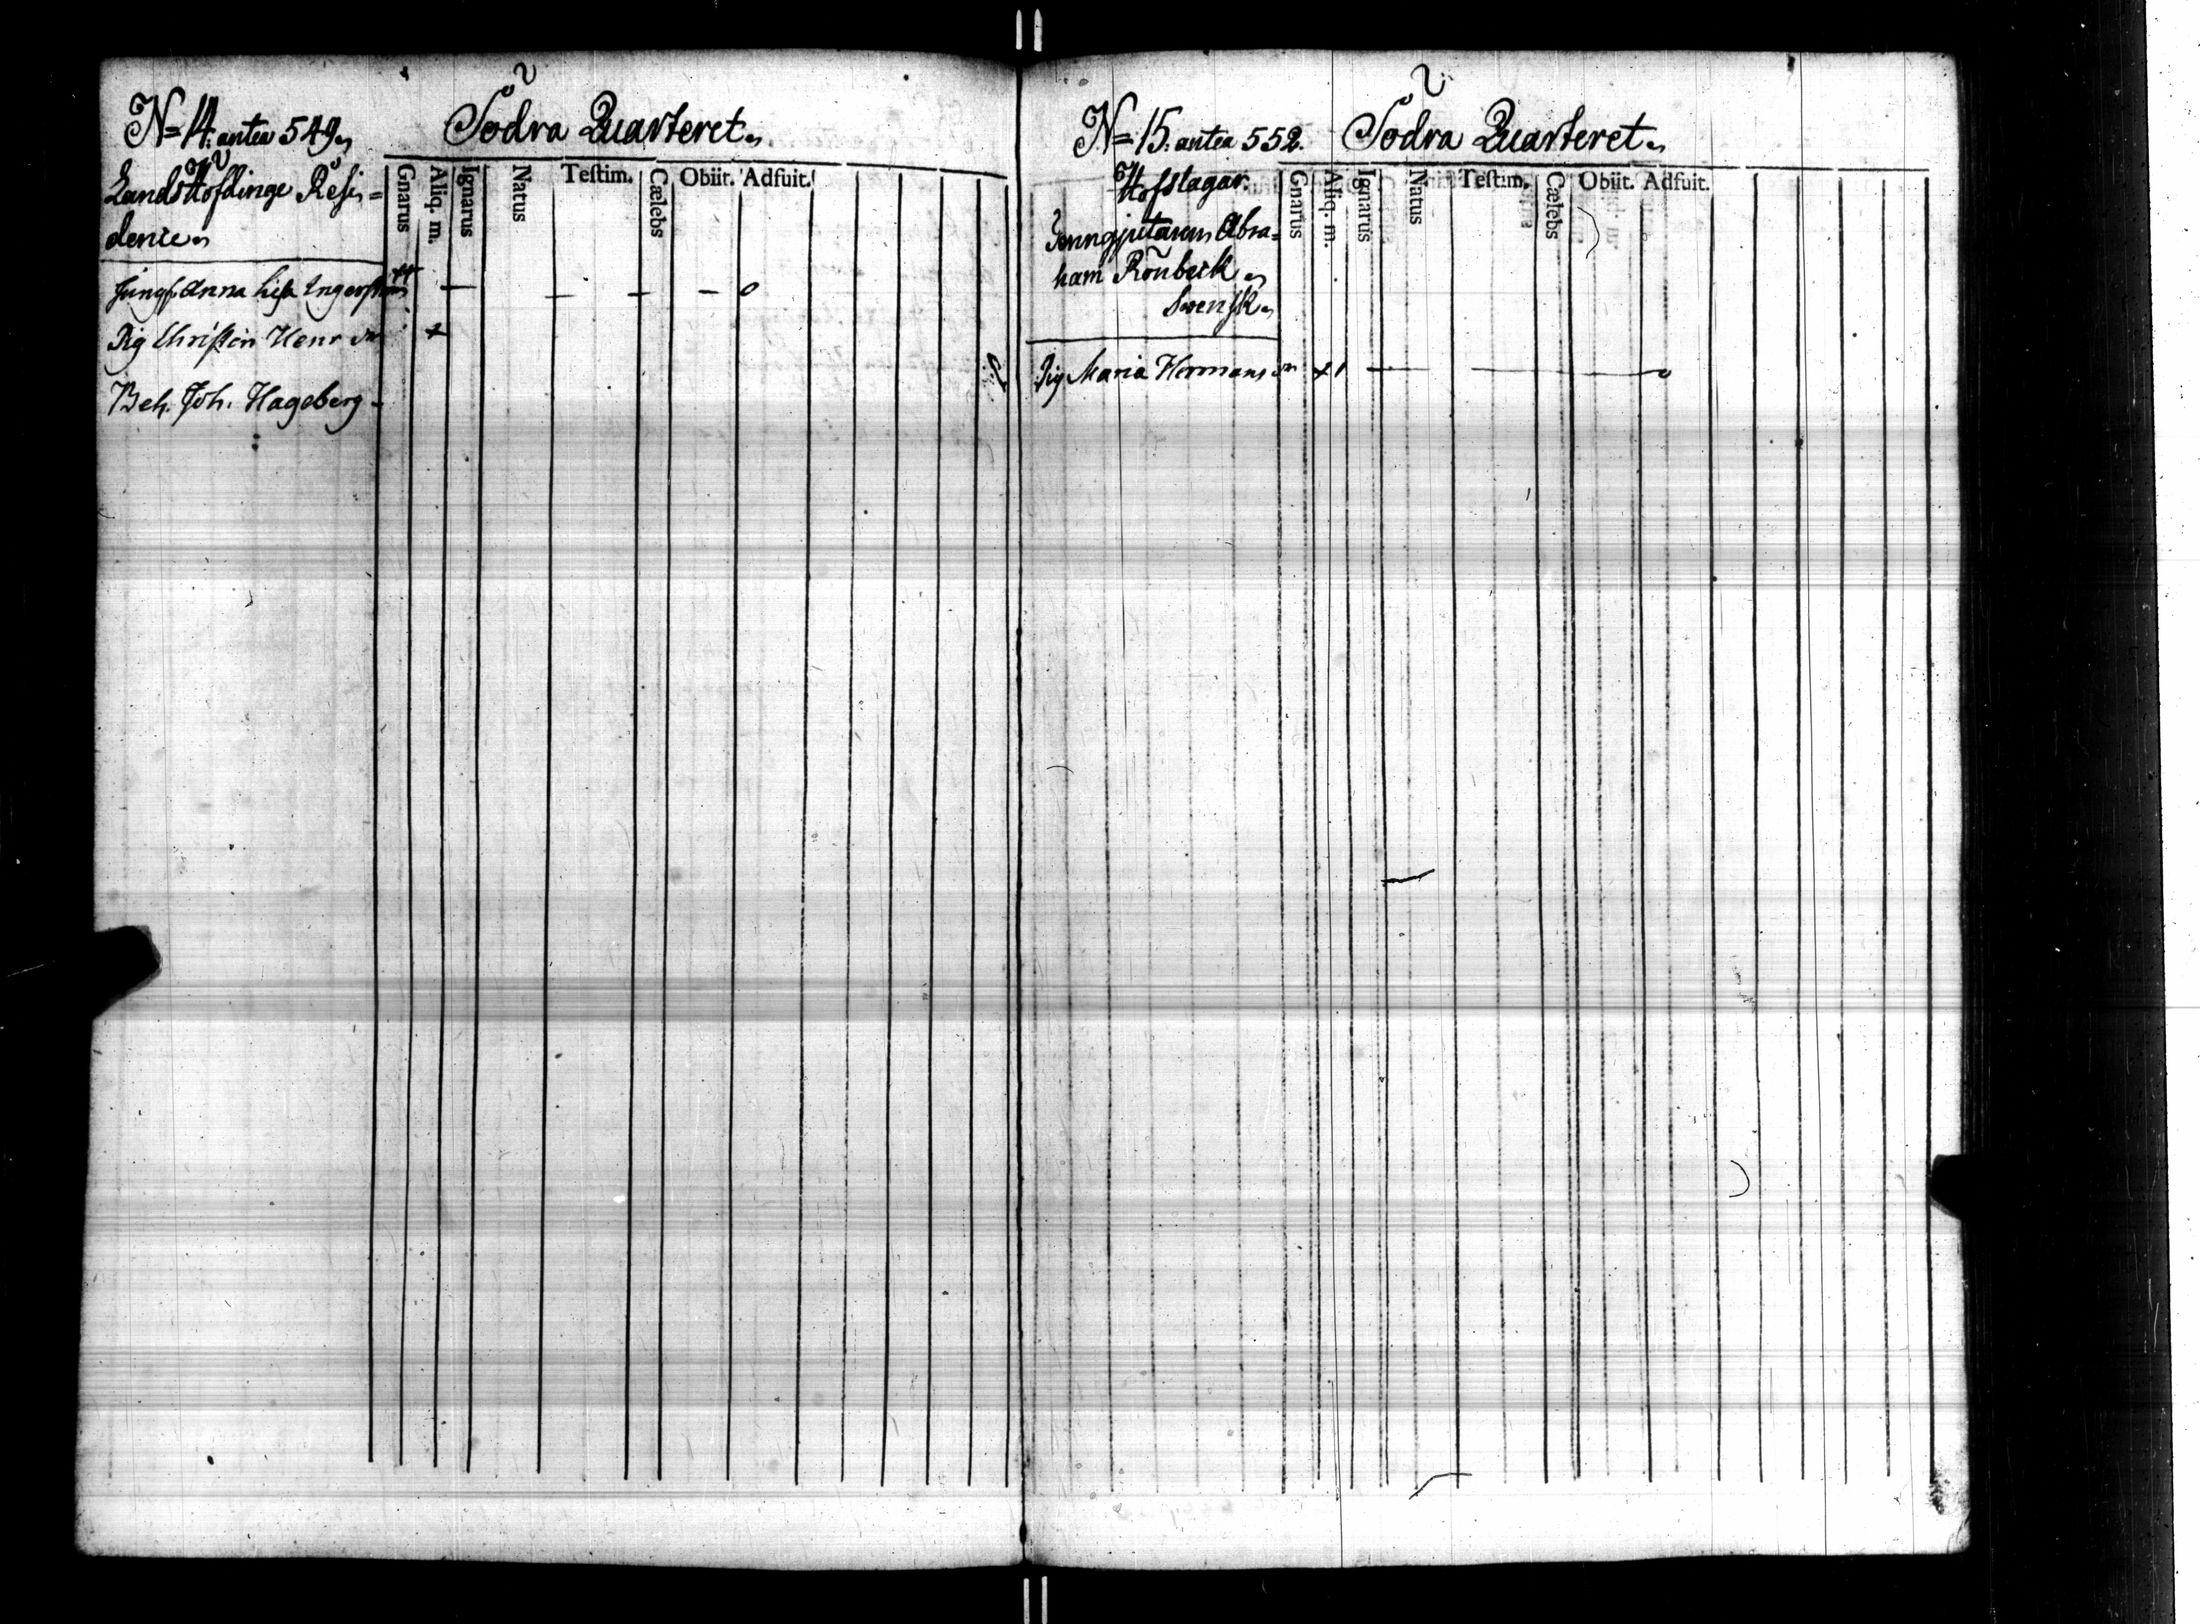 N= 14. antea 549.
Södra Quarteret.
LandsHöfdinge Resi=
dence.
Gnarus
Aliq. m.
Ignarus
Natus
Teſtim.
Cælebs
Obiit.
Adfuit.
Jungf. Anna Lisa
Pig Christin Henr dr
Bet. Joh. Hageberg
N= 15. antea 552.
Södra Quarteret.
Hofslagar.
Tenngjutaren Abra=
ham Rönbeck
Swensk.
Gnarus
Aliq. m.
Ignarus
Natus
Teſtim.
Cælebs
Obiit.
Adfuit.
Pig Maria Hermans dr